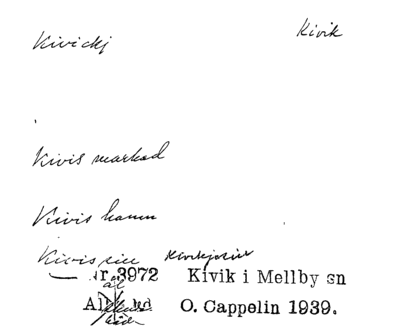 Kivickj
Kivik
Kivis markad
Kivis hamn
Kivis
Nr. 3972 Kivik i Mellby sn
O. Cappelin 1939.